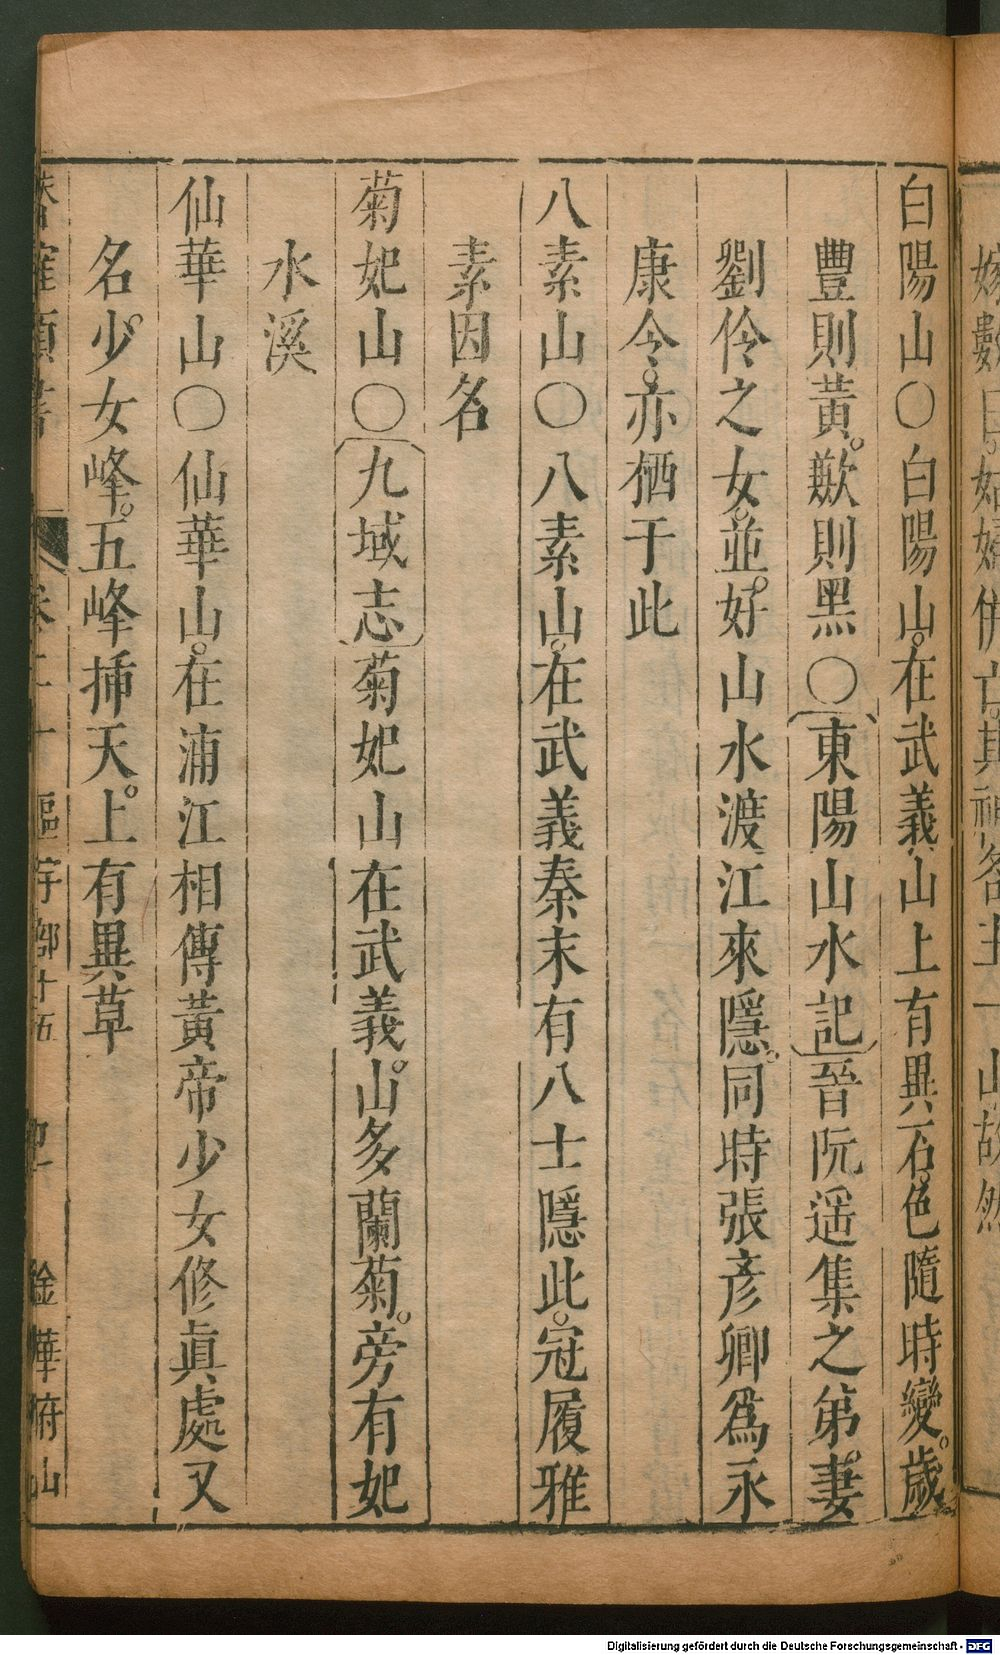 嫁數日。姑嫜俱亡。其神名主一山故然
白陽山○白陽山。在武義山上有異石。色隨時變。歲
豐則黃。歉則黑○東陽山水記晉阮遥集之第。妻
劉伶之女。並。好山水渡江來隱。同時張彥卿爲永
康令。亦栖于此
八素山○八素山。在武義秦末有八士隱此。冠履雅
素因名
菊妃山○九域志菊妃山在武義。山多蘭菊。旁有妃
水溪
仙華山○仙華山。在浦江相傳黃帝少女修眞處又
名少女峰。五峰揷天。上有異草
類書 卷二十 區宇部十五 金華府山
Digitalisierung gefördert durch die Deutsche Forschungsgemeinschaft - DFG